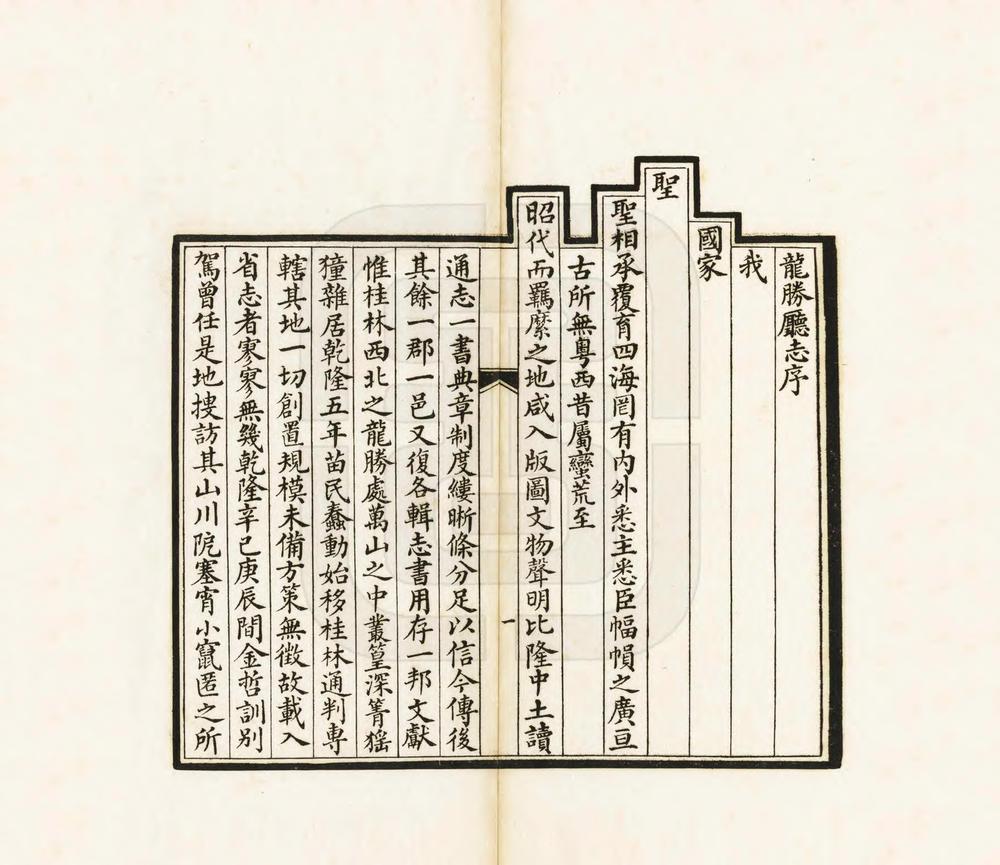 龍勝廳志序
我
國家
聖
聖相承覆育四海罔有內外悉主悉臣幅幀之廣亘
古所無粤西昔屬蠻荒至
昭代而羈縻之地咸入版圖文物聲明比隆中土讀
一
通志一書典章制度縷晰條分足以信今傳後
其餘一郡一邑又復各輯志書用存一邦文獻
惟桂林西北之龍勝處萬山之中叢篁深箐猺
獞雜居乾隆五年苗民蠢動始移桂林通判専
轄其地一切創置規模未備方策無徵故載入
省志者寥寥無幾乾隆辛巳庚辰間金哲訓別
駕曾任是地搜訪其山川阨塞宵小竄匿之所